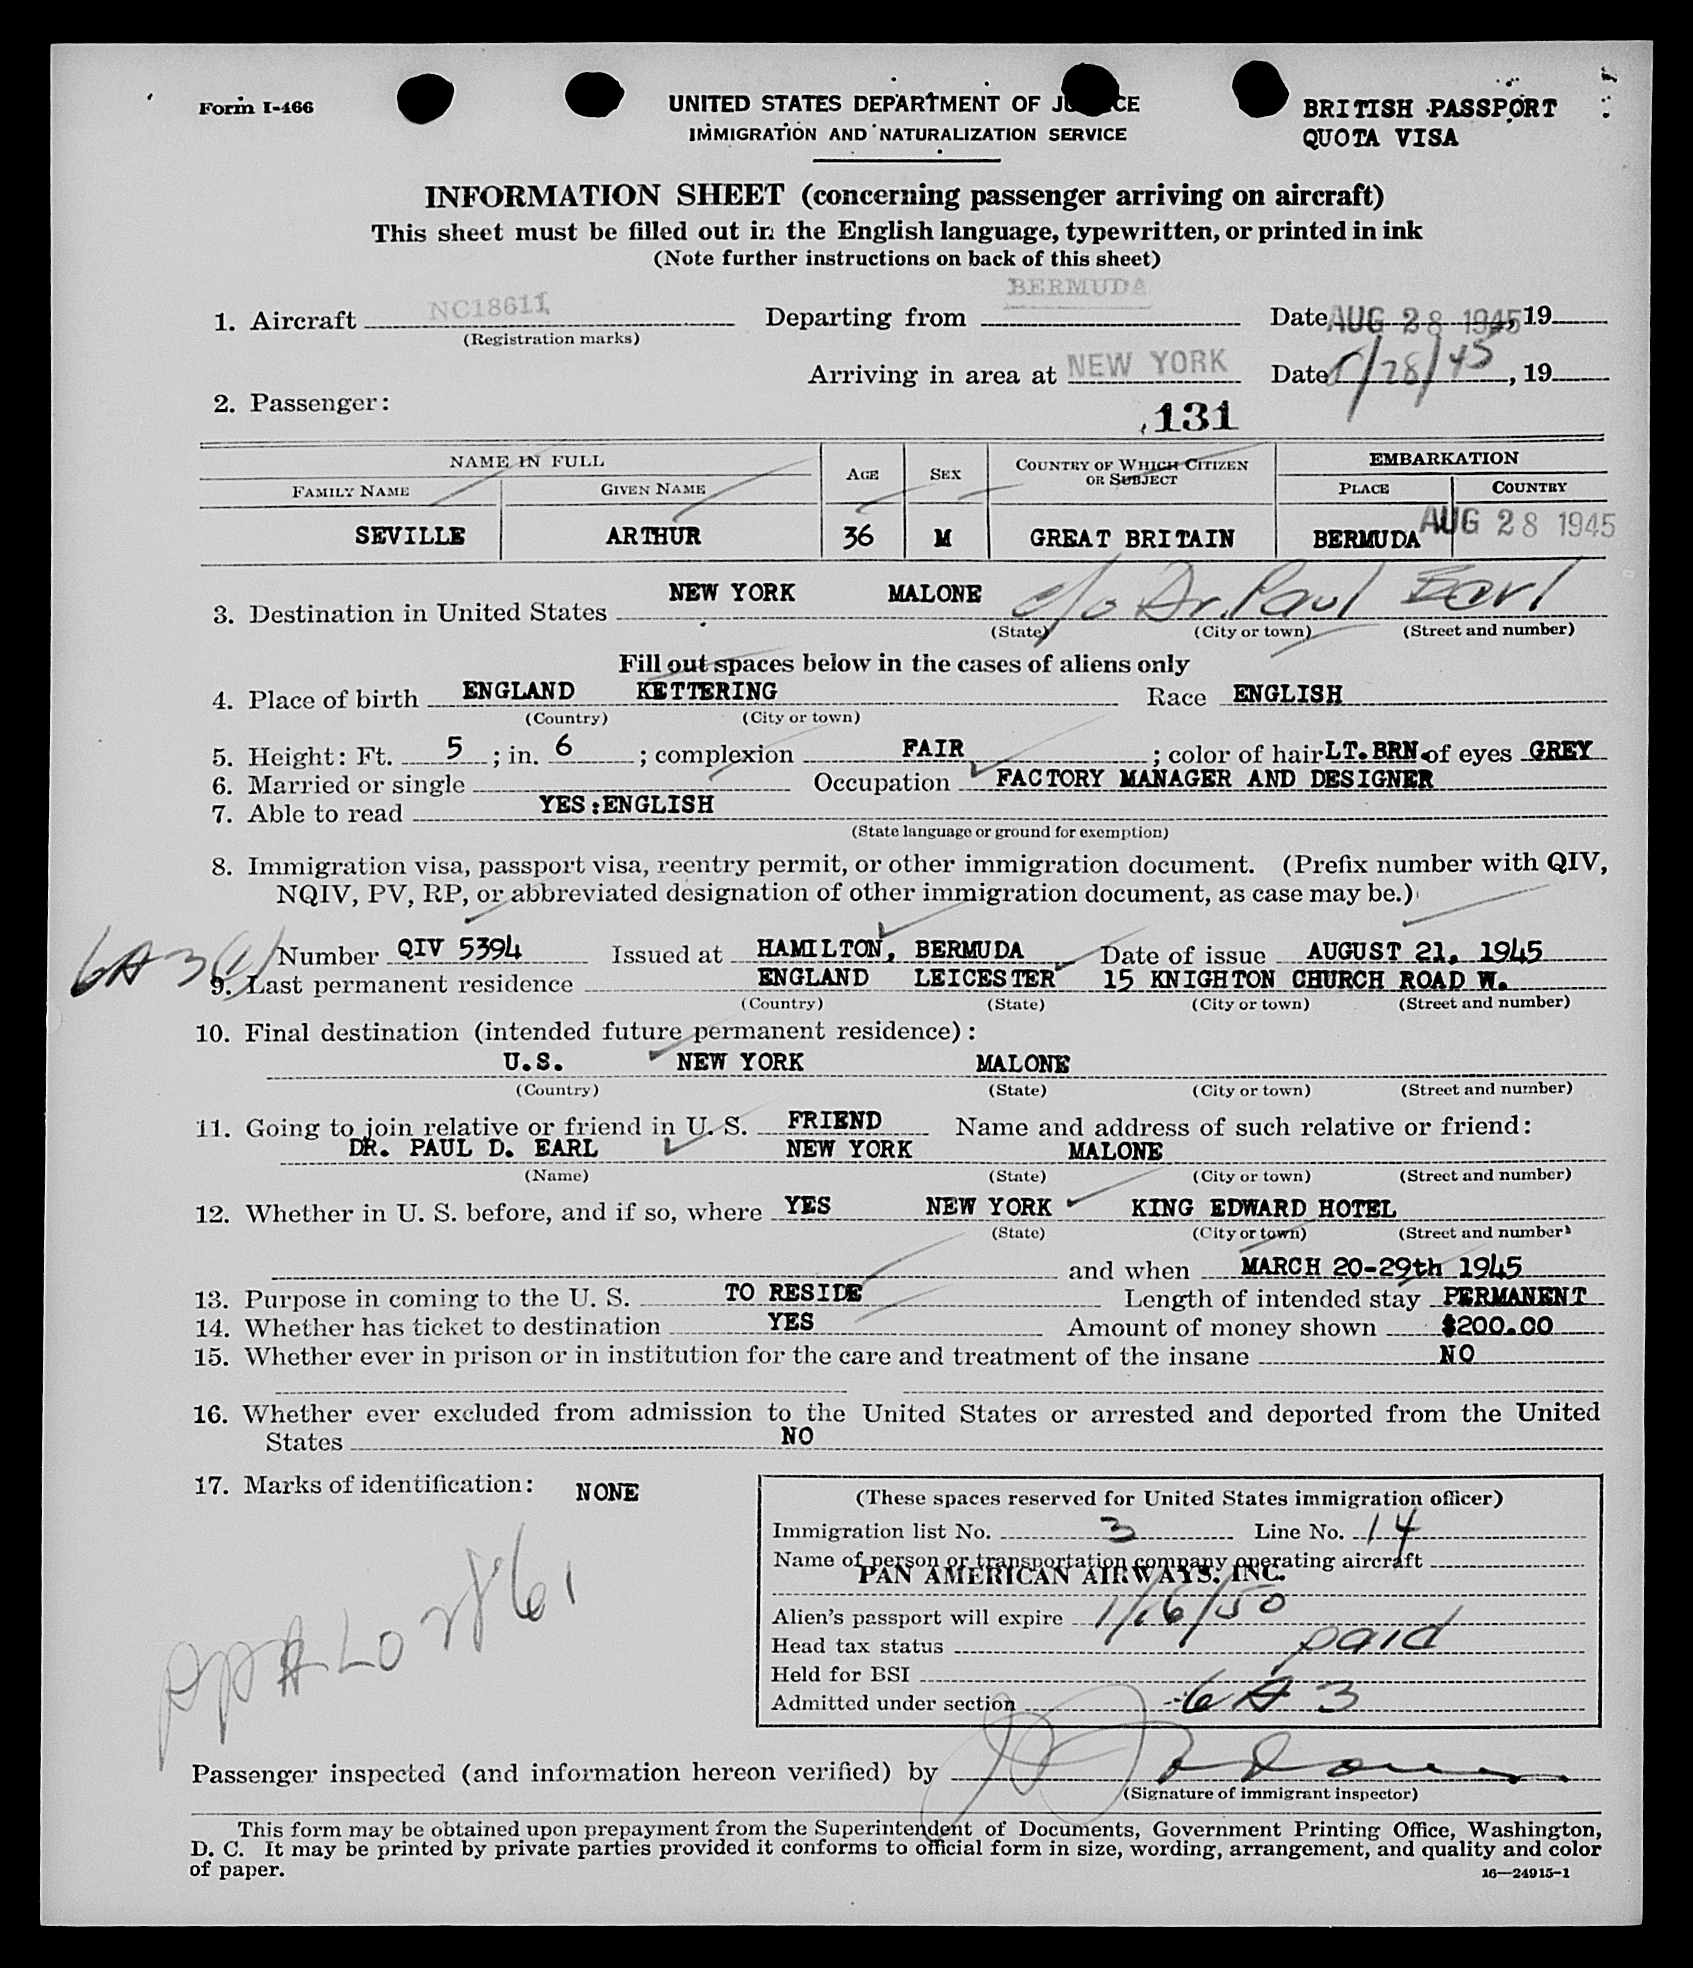 Form I-466
UNITED STATES DEPARTMENT OF JU CE
IMMIGRATION AND NATURALIZATION SERVICE
BRITISH PASSPORT
QUOTA VISA
INFORMATION SHEET (concerning passenger arriving on aircraft)
This sheet must be filled out in the English language, typewritten, or printed in ink
(Note further instructions on back of this sheet)
1. Aircraft NC18611 Departing from BERMUDA Date AUG 28 1945, 19
(Registration marks)
Arriving in area at NEW YORK Date 8/28/45, 19
2. Passenger:
131
NAME IN FULL AGE SEX COUNTRY OF WHICH CITIZEN OR SUBJECT EMBARKATION
FAMILY NAME GIVEN NAME PLACE COUNTRY
SEVILLE ARTHUR 36 M GREAT BRITAIN BERMUDA AUG 28 1945
3. Destination in United States NEW YORK MALONE c/o Dr. Paul Earl
(State) (City or town) (Street and number)
Fill out spaces below in the cases of aliens only
4. Place of birth ENGLAND KETTERING Race ENGLISH
(Country) (City or town)
5. Height: Ft. 5 ; in. 6 ; complexion FAIR ; color of hair LT. BRN of eyes GREY
6. Married or single Occupation FACTORY MANAGER AND DESIGNER
7. Able to read YES:ENGLISH
(State language or ground for exemption)
8. Immigration visa, passport visa, reentry permit, or other immigration document. (Prefix number with QIV,
NQIV, PV, RP, or abbreviated designation of other immigration document, as case may be.)
6A3 Number QIV 5394 Issued at HAMILTON, BERMUDA Date of issue AUGUST 21, 1945
9. Last permanent residence ENGLAND LEICESTER 15 KNIGHTON CHURCH ROAD W.
(Country) (State) (City or town) (Street and number)
10. Final destination (intended future permanent residence):
U.S. NEW YORK MALONE
(Country) (State) (City or town) (Street and number)
11. Going to join relative or friend in U. S. FRIEND Name and address of such relative or friend:
DR. PAUL D. EARL NEW YORK MALONE
(Name) (State) (City or town) (Street and number)
12. Whether in U. S. before, and if so, where YES NEW YORK KING EDWARD HOTEL
(State) (City or town) (Street and number)
and when MARCH 20-29th 1945
13. Purpose in coming to the U. S. TO RESIDE Length of intended stay PERMANENT
14. Whether has ticket to destination YES Amount of money shown $200.00
15. Whether ever in prison or in institution for the care and treatment of the insane NO
16. Whether ever excluded from admission to the United States or arrested and deported from the United
States NO
17. Marks of identification: NONE
(These spaces reserved for United States immigration officer)
Immigration list No. 3 Line No. 14
Name of person or transportation company operating aircraft
PAN AMERICAN AIRWAYS, INC.
Alien's passport will expire 1/16/50
Head tax status paid
Held for BSI
Admitted under section 6A3
Passenger inspected (and information hereon verified) by
(Signature of immigrant inspector)
This form may be obtained upon prepayment from the Superintendent of Documents, Government Printing Office, Washington,
D. C. It may be printed by private parties provided it conforms to official form in size, wording, arrangement, and quality and color
of paper.
16—24915-1